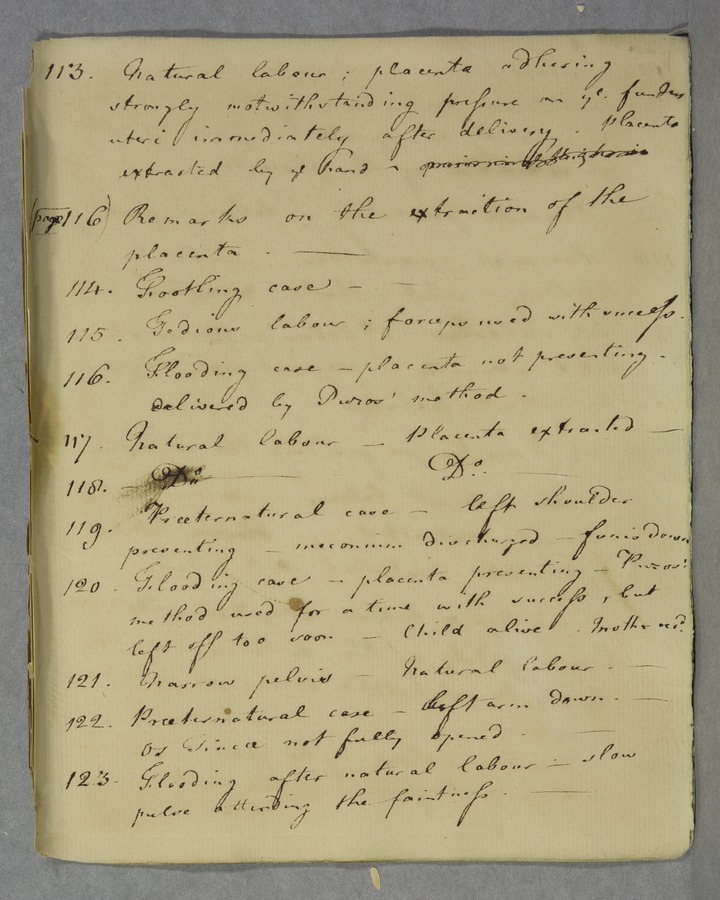 113. Natural labour ; placenta adhering
strongly notwithstanding pressure on ye. fundus
uteri immediately after delivery. Placenta
extracted by ye hand -
(page 116) Remarks on the extraction of the
placenta .
114. Footling case -
115. Tedious labour ; forceps used with success.
116. Flooding case - placenta not presenting.
delivered by Puzos' method.
117. Natural labour - Placenta extracted -
118. Do. Do.
119. Præternatural case - left shoulder
presenting - meconium discharged - funis down
120. Flooding case - placenta presenting - Puzos'
method used for a time with success, but
left off too soon - Child alive. Mother
121. Narrow pelvis - Natural labour. -
122. Præternatural case - left arm down. -
os tincæ not fully opened -
123. Flooding after natural labour - slow
pulse attending the faintness. -